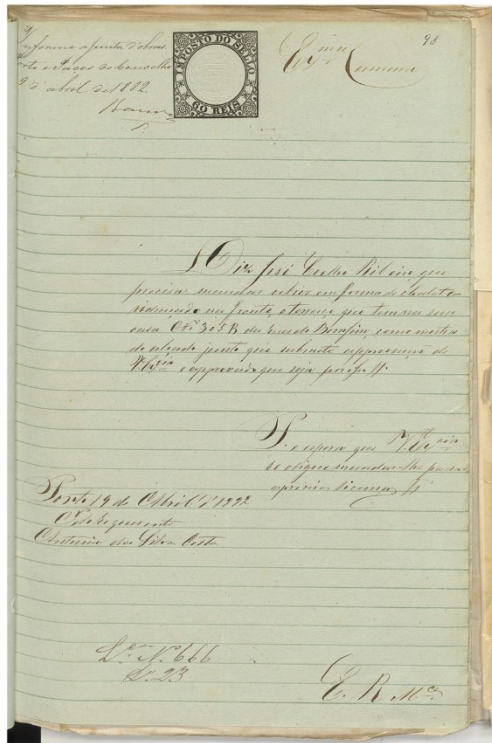 Informe a junta d'obras.
Porto e Paços do Concelho
de abril de 1892.
98
IMPOSTO DO SELLO
60 REIS
Exma Camara
Diz José Coelho Ribeiro que
precisa mandar cobrir em forma de chalet
na frente, o terraço que tem na sua
casa Nº 305 B da Rua do Bomfim, como mostra
o junto que submete approvação de
e approvado que seja por isso
P. e espera que V. Excias
se digne mandar-lhe passar
a precisa licença
Porto 19 de Abril de 1892
O de Requerente
Antonio da Silva Costa
Lça Nº 666
D. 23
E. R. Mce